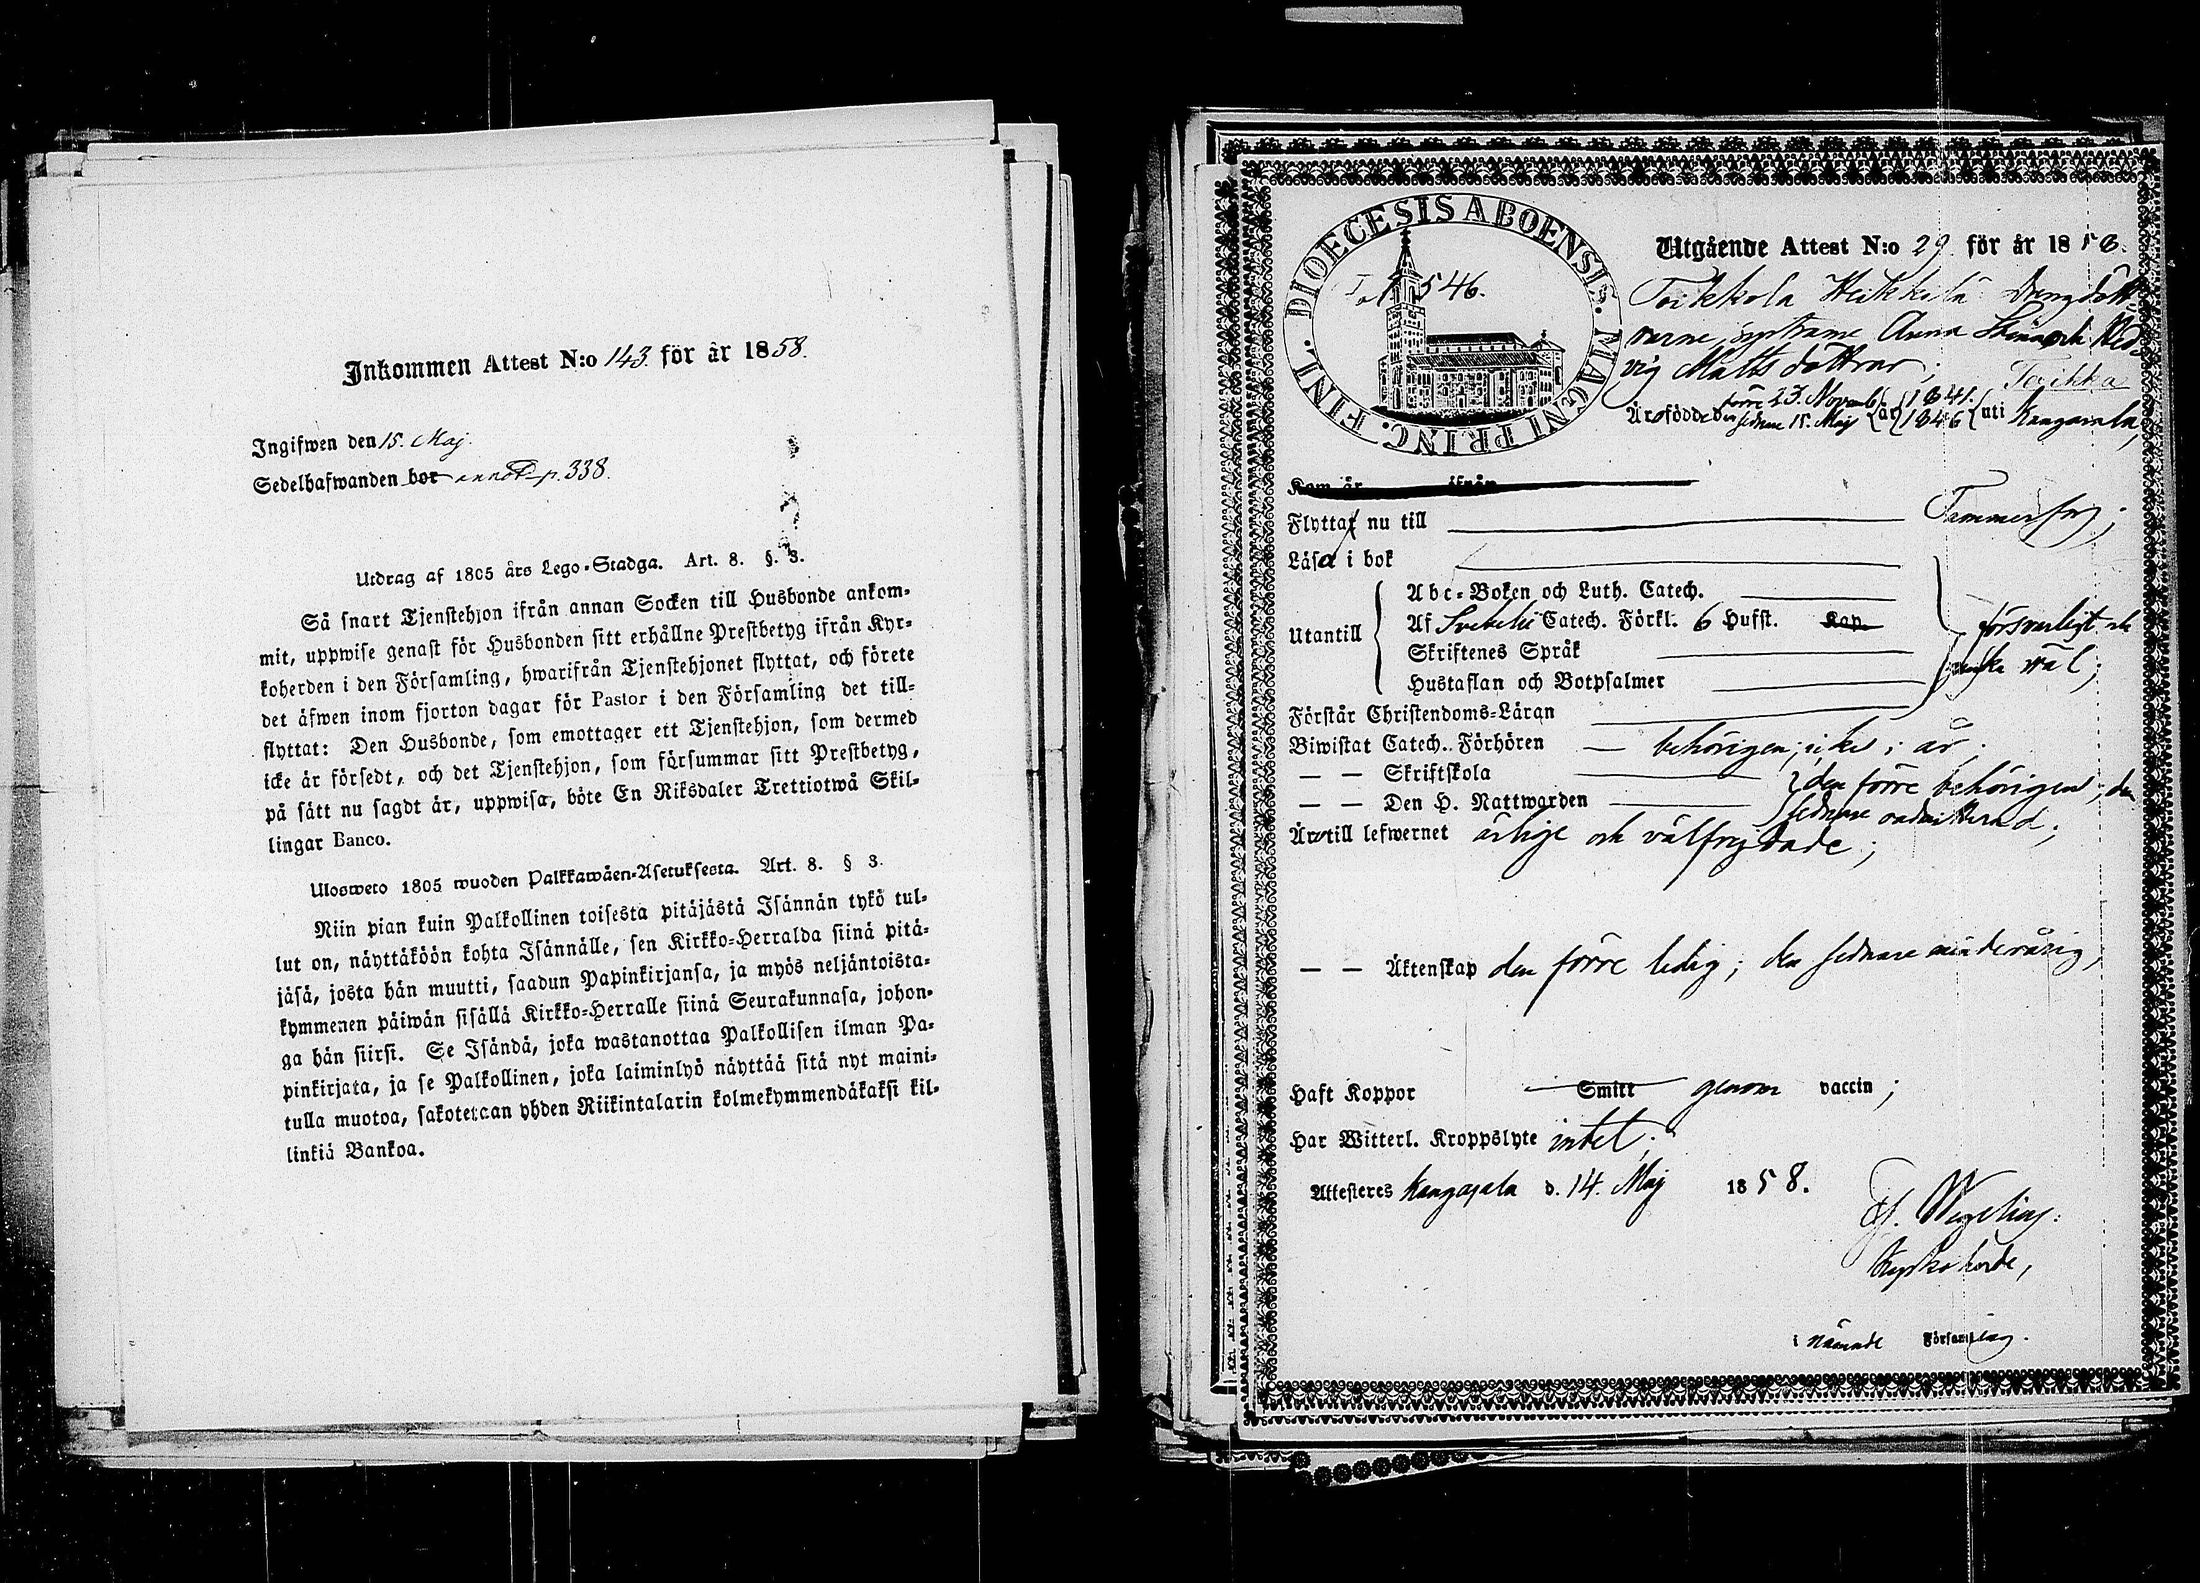 Inkommen Attest N:o 143. för år 1858.
Ingifwen den 15. Maj.
Sedelhafwanden bor annot. p. 338.
Utdrag af 1805 års Lego-Stadga. Art. 8. §. 3.
Så snart Tjenstehjon ifrån annan Socken till Husbonde ankom-
mit, uppwise genast för Husbonden sitt erhållne Prestbetyg ifrån Kyr-
koherden i den Församling, hwarifrån Tjenstehjonet flyttat, och förete
det äfwen inom fjorton dagar för Pastor i den Församling det till-
flyttat: Den Husbonde, som emottager ett Tjenstehjon, som dermed
icke är försedt, och det Tjenstehjon, som försummar sitt Prestbetyg,
på sätt nu sagdt är, uppwisa, böte En Riksdaler Trettiotwå Skil-
lingar Banco.
Ulosweto 1805 wuoden Palkkawäen-Asetuksesta. Art. 8. § 3.
Niin pian kuin Palkollinen toisesta pitäjästä Isännän tykö tul-
lut on, näyttäköön kohta Isännälle, sen Kirkko-Herralda siinä pitä-
jäsä, josta hän muutti, saadun Papinkirjansa, ja myös neljäntoista-
kymmenen päiwän sisällä Kirkko-Herralle siinä Seurakunnasa, johon-
ga hän siirsi. Se Isändä, joka wastanottaa Palkollisen ilman Pa-
pinkirjata, ja se Palkollinen, joka laiminlyö näyttää sitä nyt maini-
tulla muotoa, sakotetaan yhden Riikintalarin kolmekymmendäkaksi kil-
linkiä Bankoa.
DIOECESIS ABOENSIS. MAGNI PRINC. FINL.
546.
Utgående Attest N:o 29. för år 1858.
Toikkola Heikkilä Drengdött-
rarne, systrarne Anna Stina och Hed-
vig Mattsdöttrar; Toikka
Äro födde den förre 23. Novemb. sednare 15. Maj år 1841. 1846 uti Kangasala,
Kom år ifrån
Flyttat nu till Tammerfors;
Läsa i bok
Utantill
Abc-Boken och Luth. Catech.
Af Svebelii Catech. Förkl. 6 Hufst. Kap.
Skriftenes Språk
Hustaflan och Botpsalmer
försvarligt och
ganska väl;
Förstår Christendoms-Läran
Biwistat Catech. Förhören behörigen; i år.
— — Skriftskola
— — Den H. Nattwarden
den förre behörigen, den
sednare oadmitterad;
Äro till lefwernet ärlige och välfrejdade;
— — Äktenskap den förre ledig; den sednare minderårig,
Haft Koppor Smitt genom vaccin;
Har Witterl. Kroppslyte intet;
Attesteres Kangasala d. 14. Maj 1858.
Wegelius:
Kyrkoherde,
i nämnde Församling.